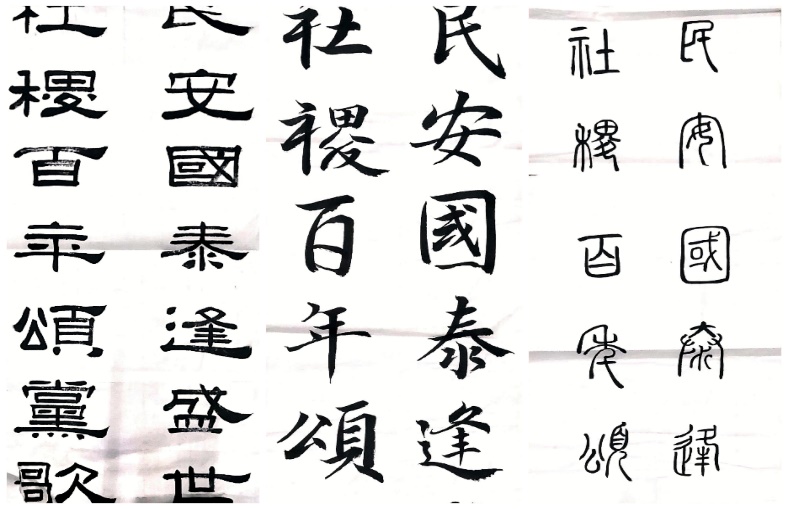 民安國泰逢盛世
社稷百年頌黨歌
民安國泰逢
社稷百年頌
民安國泰逢
社稷百年頌